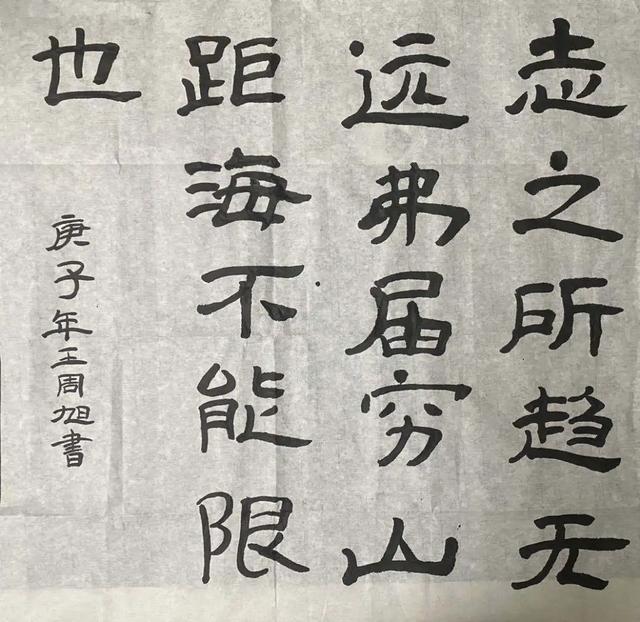 志之所趋无
远弗届穷山
距海不能限
也
庚子年王周旭書